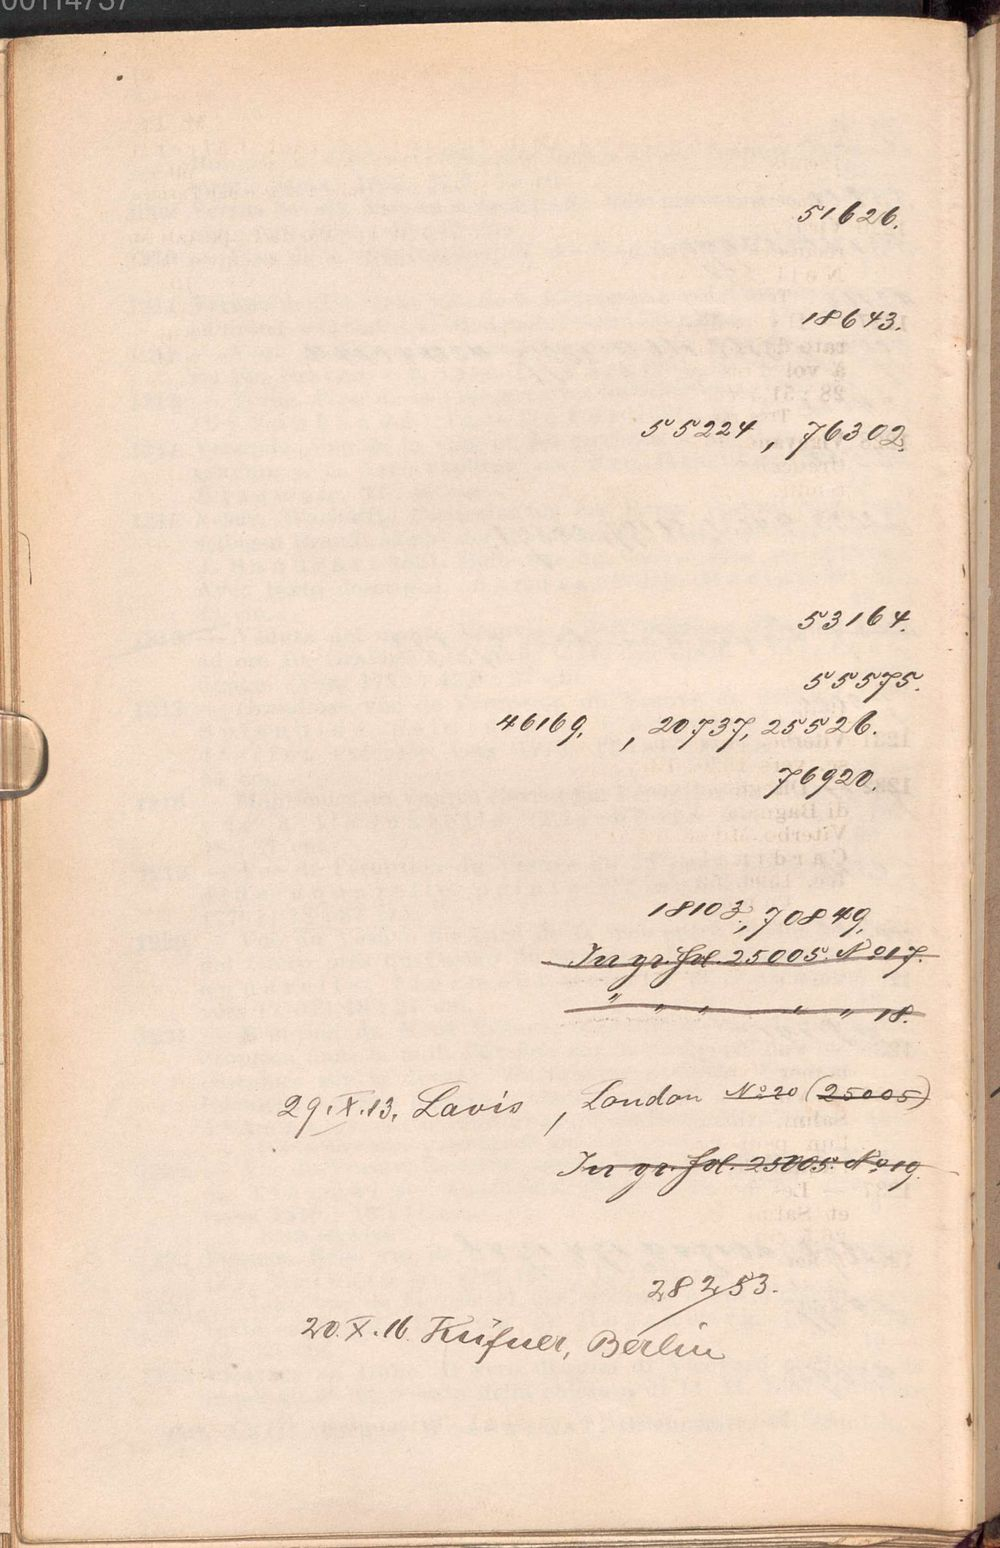 00114737
51626.
18643.
55224, 76302.
53164.
55575.
46169, , 20737, 25526.
76920.
18103, 70849,
In gr. fol. 25005. No 17.
" " " " " 18.
29.X.13. Lavis , London No 20 (25005)
In gr. fol. 25005. No 19.
28253.
20.X.16. Küfner, Berlin